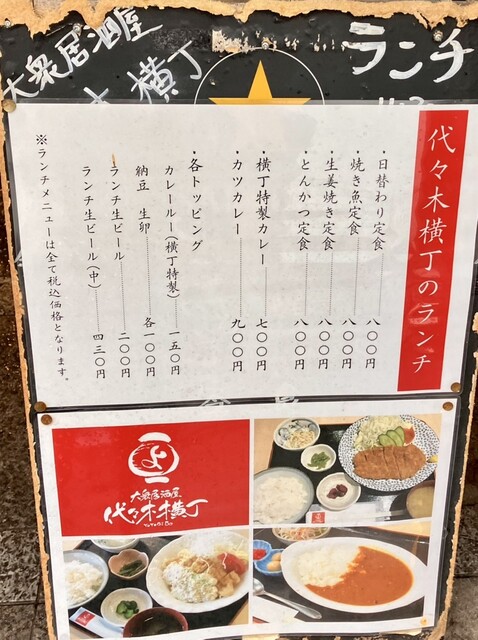 大衆居酒屋
横丁
ランチ
代々木横丁のランチ
・日替わり定食 八〇〇円
・焼き魚定食 八〇〇円
・生姜焼き定食 八〇〇円
・とんかつ定食 八〇〇円
・横丁特製カレー 七〇〇円
・カツカレー 九〇〇円
・各トッピング
カレールー(横丁特製) 一五〇円
納豆 生卵 各一〇〇円
ランチ生ビール 二〇〇円
ランチ生ビール(中) 四三〇円
※ランチメニューは全て税込価格となります。
よ
大衆居酒屋
代々木横丁